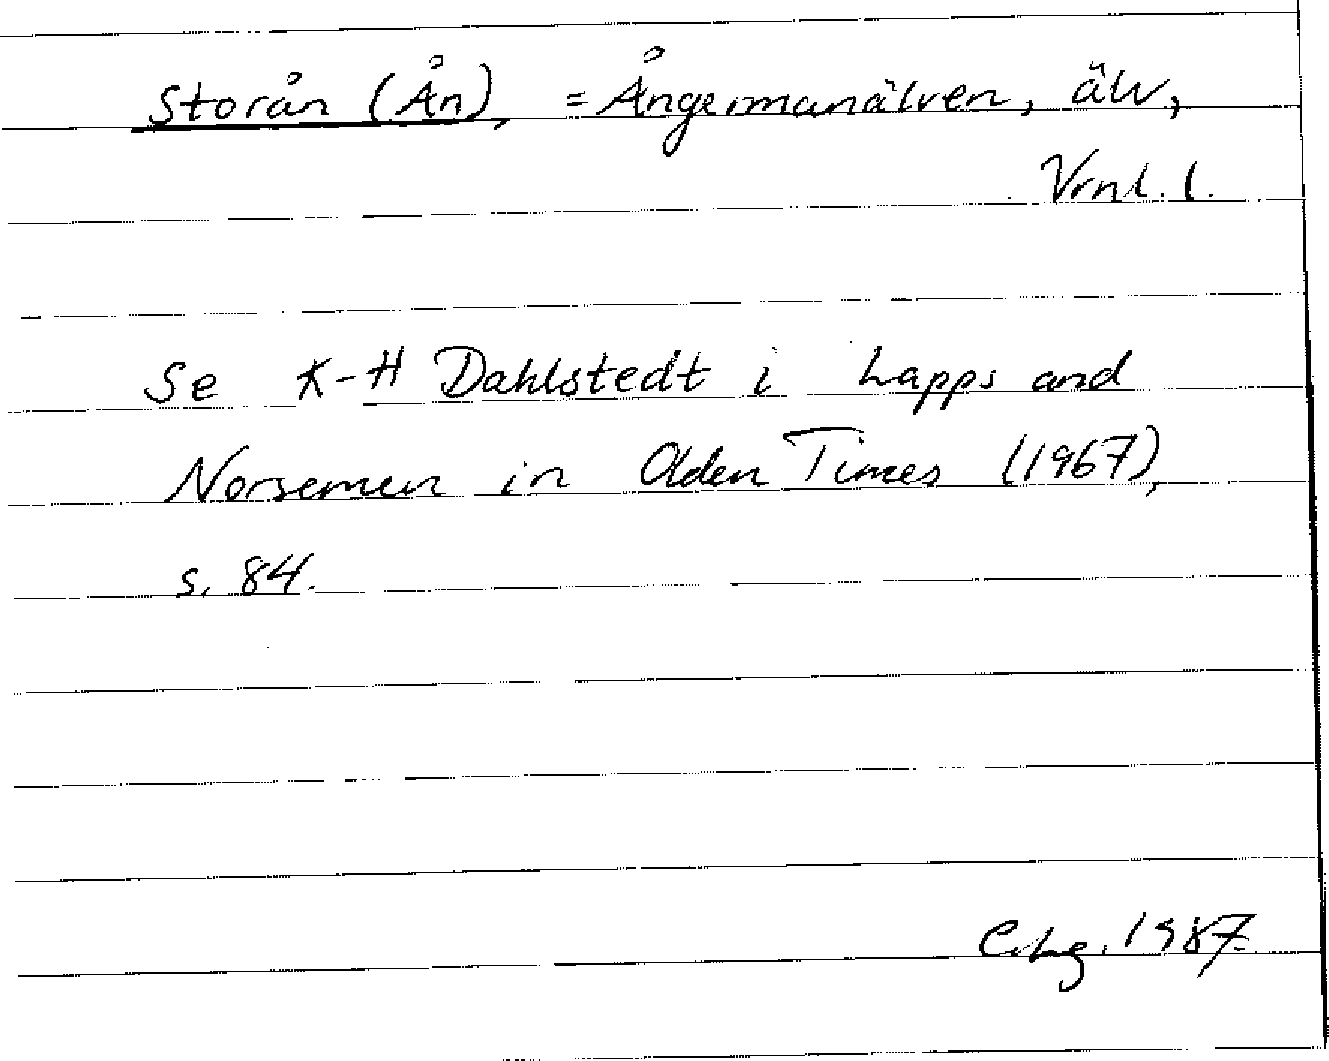 Storån (Ån), = Ångermanälven, älv,
Se K-H Dahlstedt i Lapps and
Norsemen in Olden Times (1967),
s. 84.
1987.